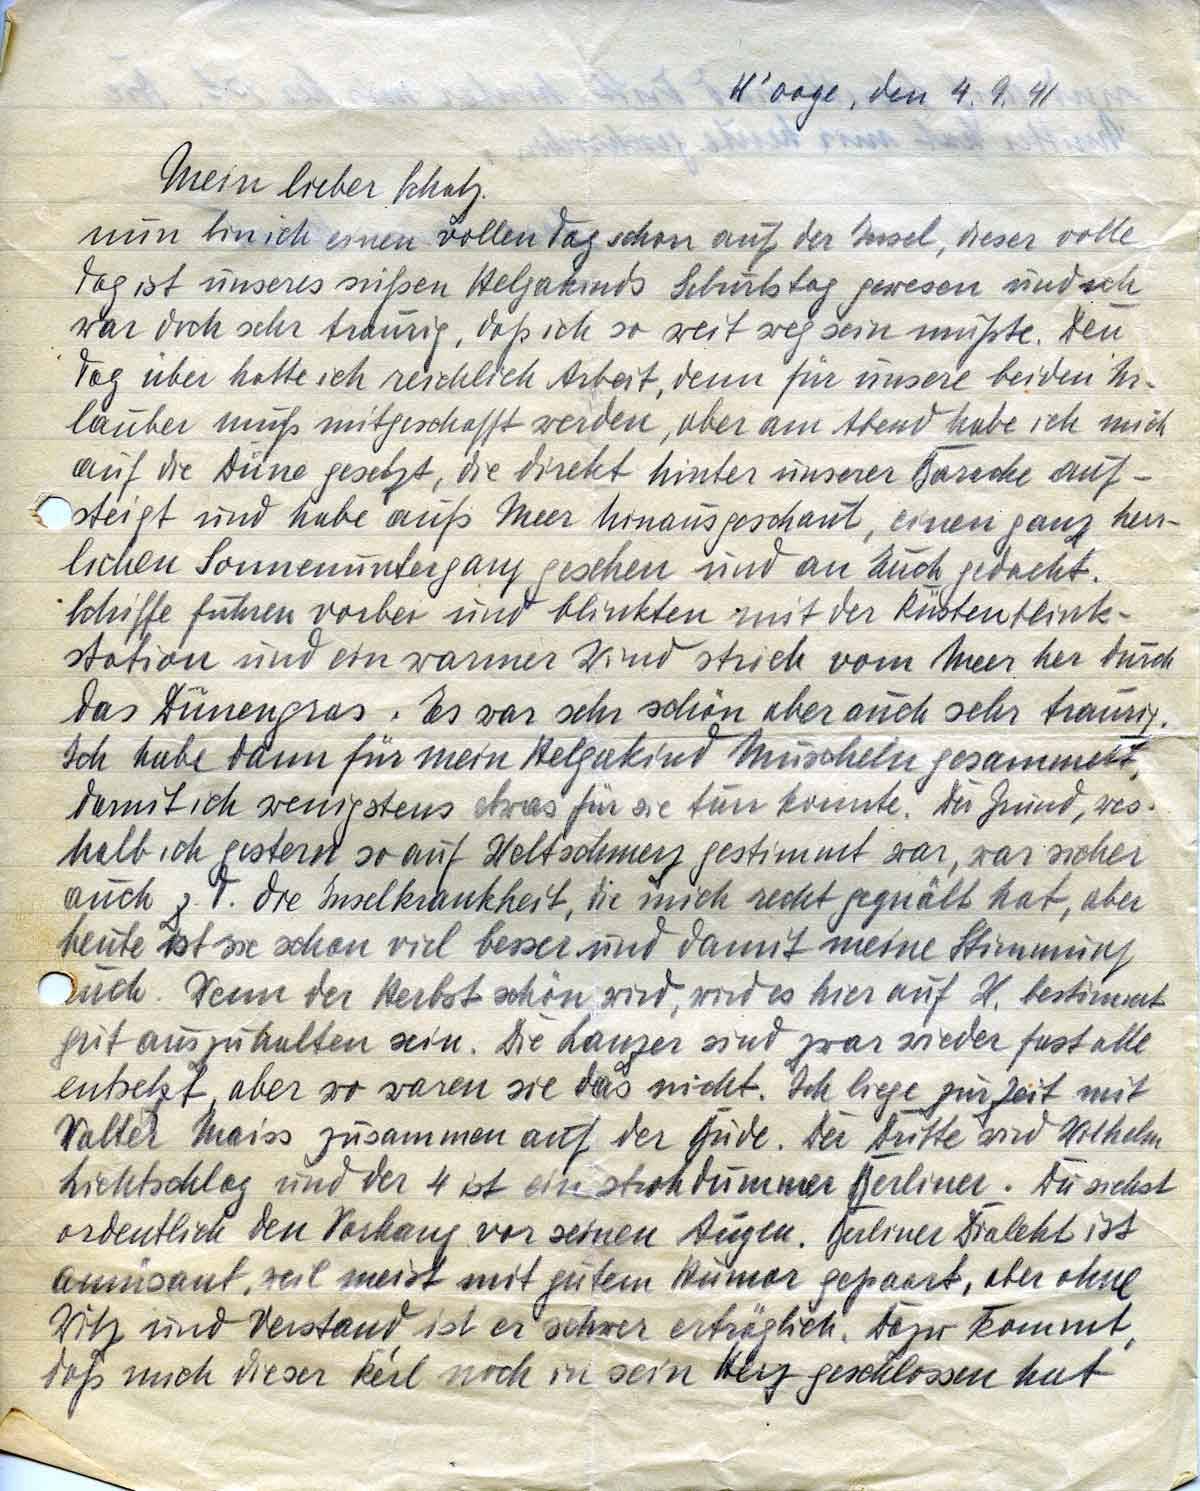 W'ooge, den 4. 9. 41
Mein lieber Schatz.
nun bin ich einen vollen Tag schon auf der Insel, dieser volle
Tag ist unseres süßen Helgakinds Geburtstag gewesen und ich
war doch sehr traurig, daß ich so weit weg sein mußte. Den
Tag über hatte ich reichlich Arbeit, denn für unsere beiden Ur-
lauber muß mitgeschafft werden, aber am Abend habe ich mich
auf die Düne gesetzt, die direkt hinter unserer Baracke auf-
steigt und habe aufs Meer hinausgeschaut, einen ganz herr-
lichen Sonnenuntergang gesehen und an Euch gedacht.
Schiffe fuhren vorbei und blinkten mit der Küstenblink-
station und ein warmer Wind strich vom Meer her durch
das Dünengras. Es war sehr schön aber auch sehr traurig.
Ich habe dann für mein Helgakind Muscheln gesammelt,
damit ich wenigstens etwas für sie tun konnte. Der Grund, wes-
halb ich gestern so auf Weltschmerz gestimmt war, war sicher
auch z. T. die Inselkrankheit, die mich recht gequält hat, aber
heute ist sie schon viel besser und damit meine Stimmung
auch. Wenn der Herbst schön wird, wird es hier auf W. bestimmt
gut auszuhalten sein. Die Lanzer sind zwar wieder fast alle
entsetzt, aber wo waren sie das nicht. Ich liege zur Zeit mit
Walter Maiss zusammen auf der Bude. Der Dritte wird Wilhelm
Lichtschlag und der 4 ist ein strohdummer Berliner. Du siehst
ordentlich den Vorhang vor seinen Augen. Berliner Dialekt ist
amüsant, weil meist mit gutem Humor gepaart, aber ohne
Witz und Verstand ist er schwer erträglich. Dazu kommt,
daß mich dieser Kerl noch in sein Herz geschlossen hat